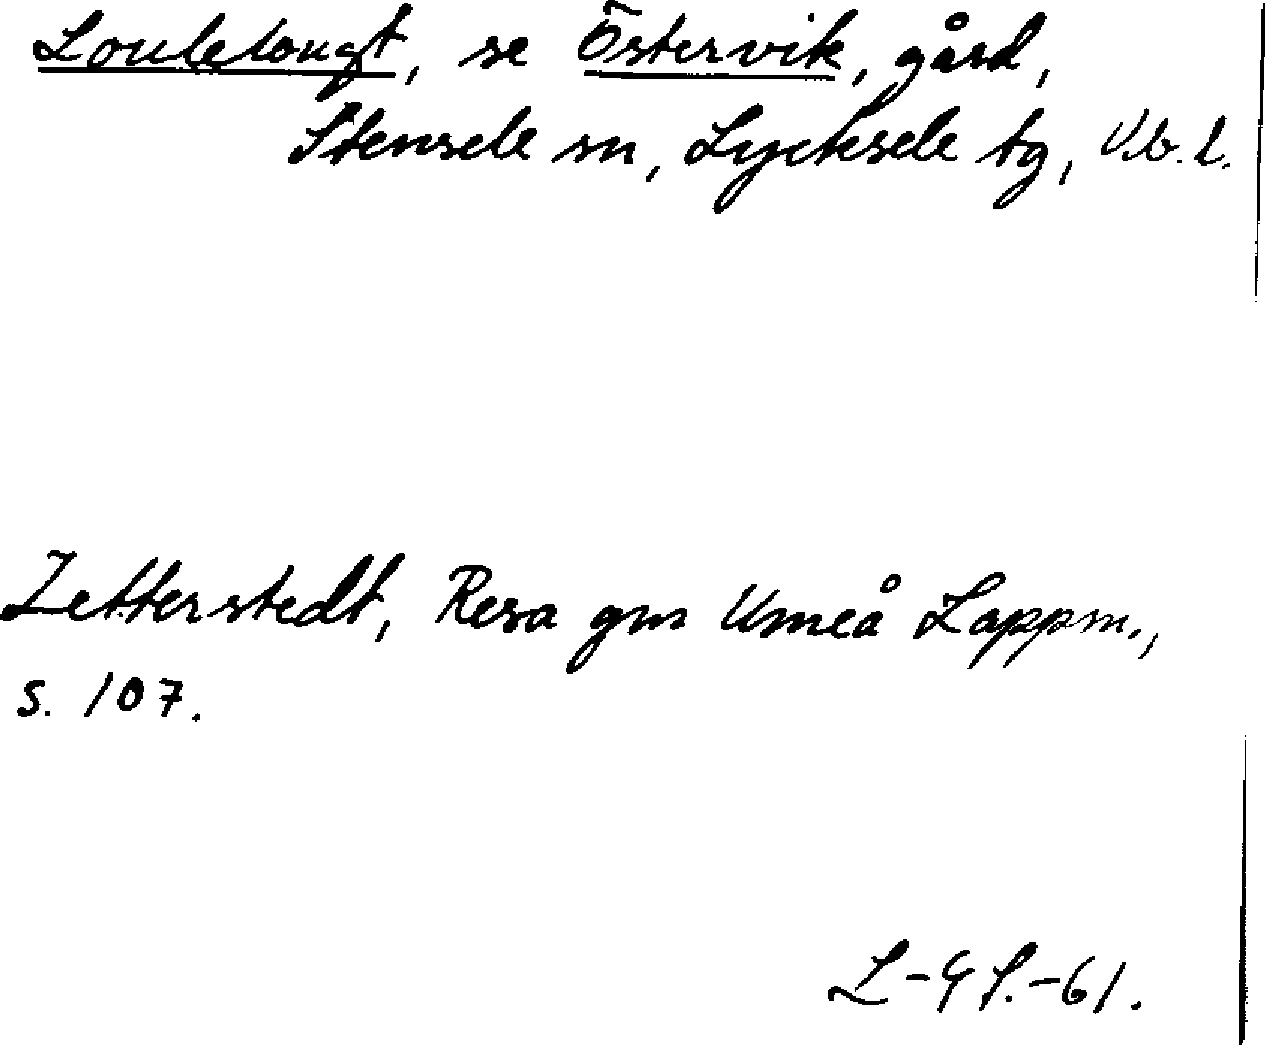 Louleluogt, se Östervik, gård,
Stensele sn, Lycksele tg, V.b.l.
Zetterstedt, Resa gm Umeå Lappm.,
s. 107.
L-G S.-61.